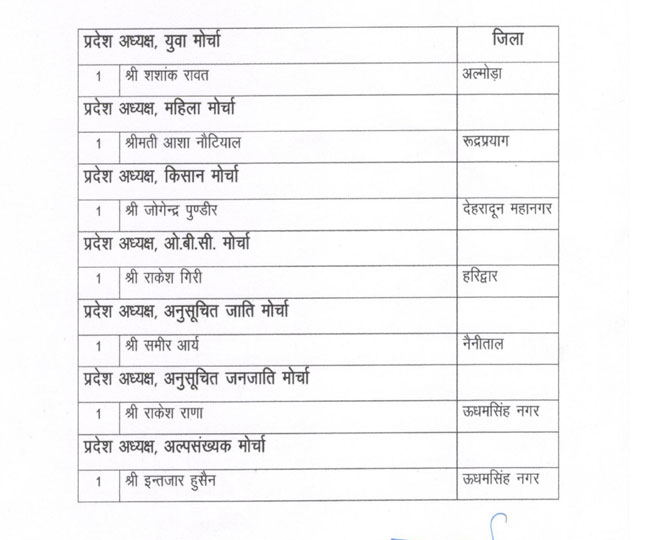 प्रदेश अध्यक्ष, युवा मोर्चा जिला
1 श्री शशांक रावत अल्मोड़ा
प्रदेश अध्यक्ष, महिला मोर्चा
1 श्रीमती आशा नौटियाल रूद्रप्रयाग
प्रदेश अध्यक्ष, किसान मोर्चा
1 श्री जोगेन्द्र पुण्डीर देहरादून महानगर
प्रदेश अध्यक्ष, ओ.बी.सी. मोर्चा
1 श्री राकेश गिरी हरिद्वार
प्रदेश अध्यक्ष, अनुसूचित जाति मोर्चा
1 श्री समीर आर्य नैनीताल
प्रदेश अध्यक्ष, अनुसूचित जनजाति मोर्चा
1 श्री राकेश राणा ऊधमसिंह नगर
प्रदेश अध्यक्ष, अल्पसंख्यक मोर्चा
1 श्री इन्तजार हुसैन ऊधमसिंह नगर